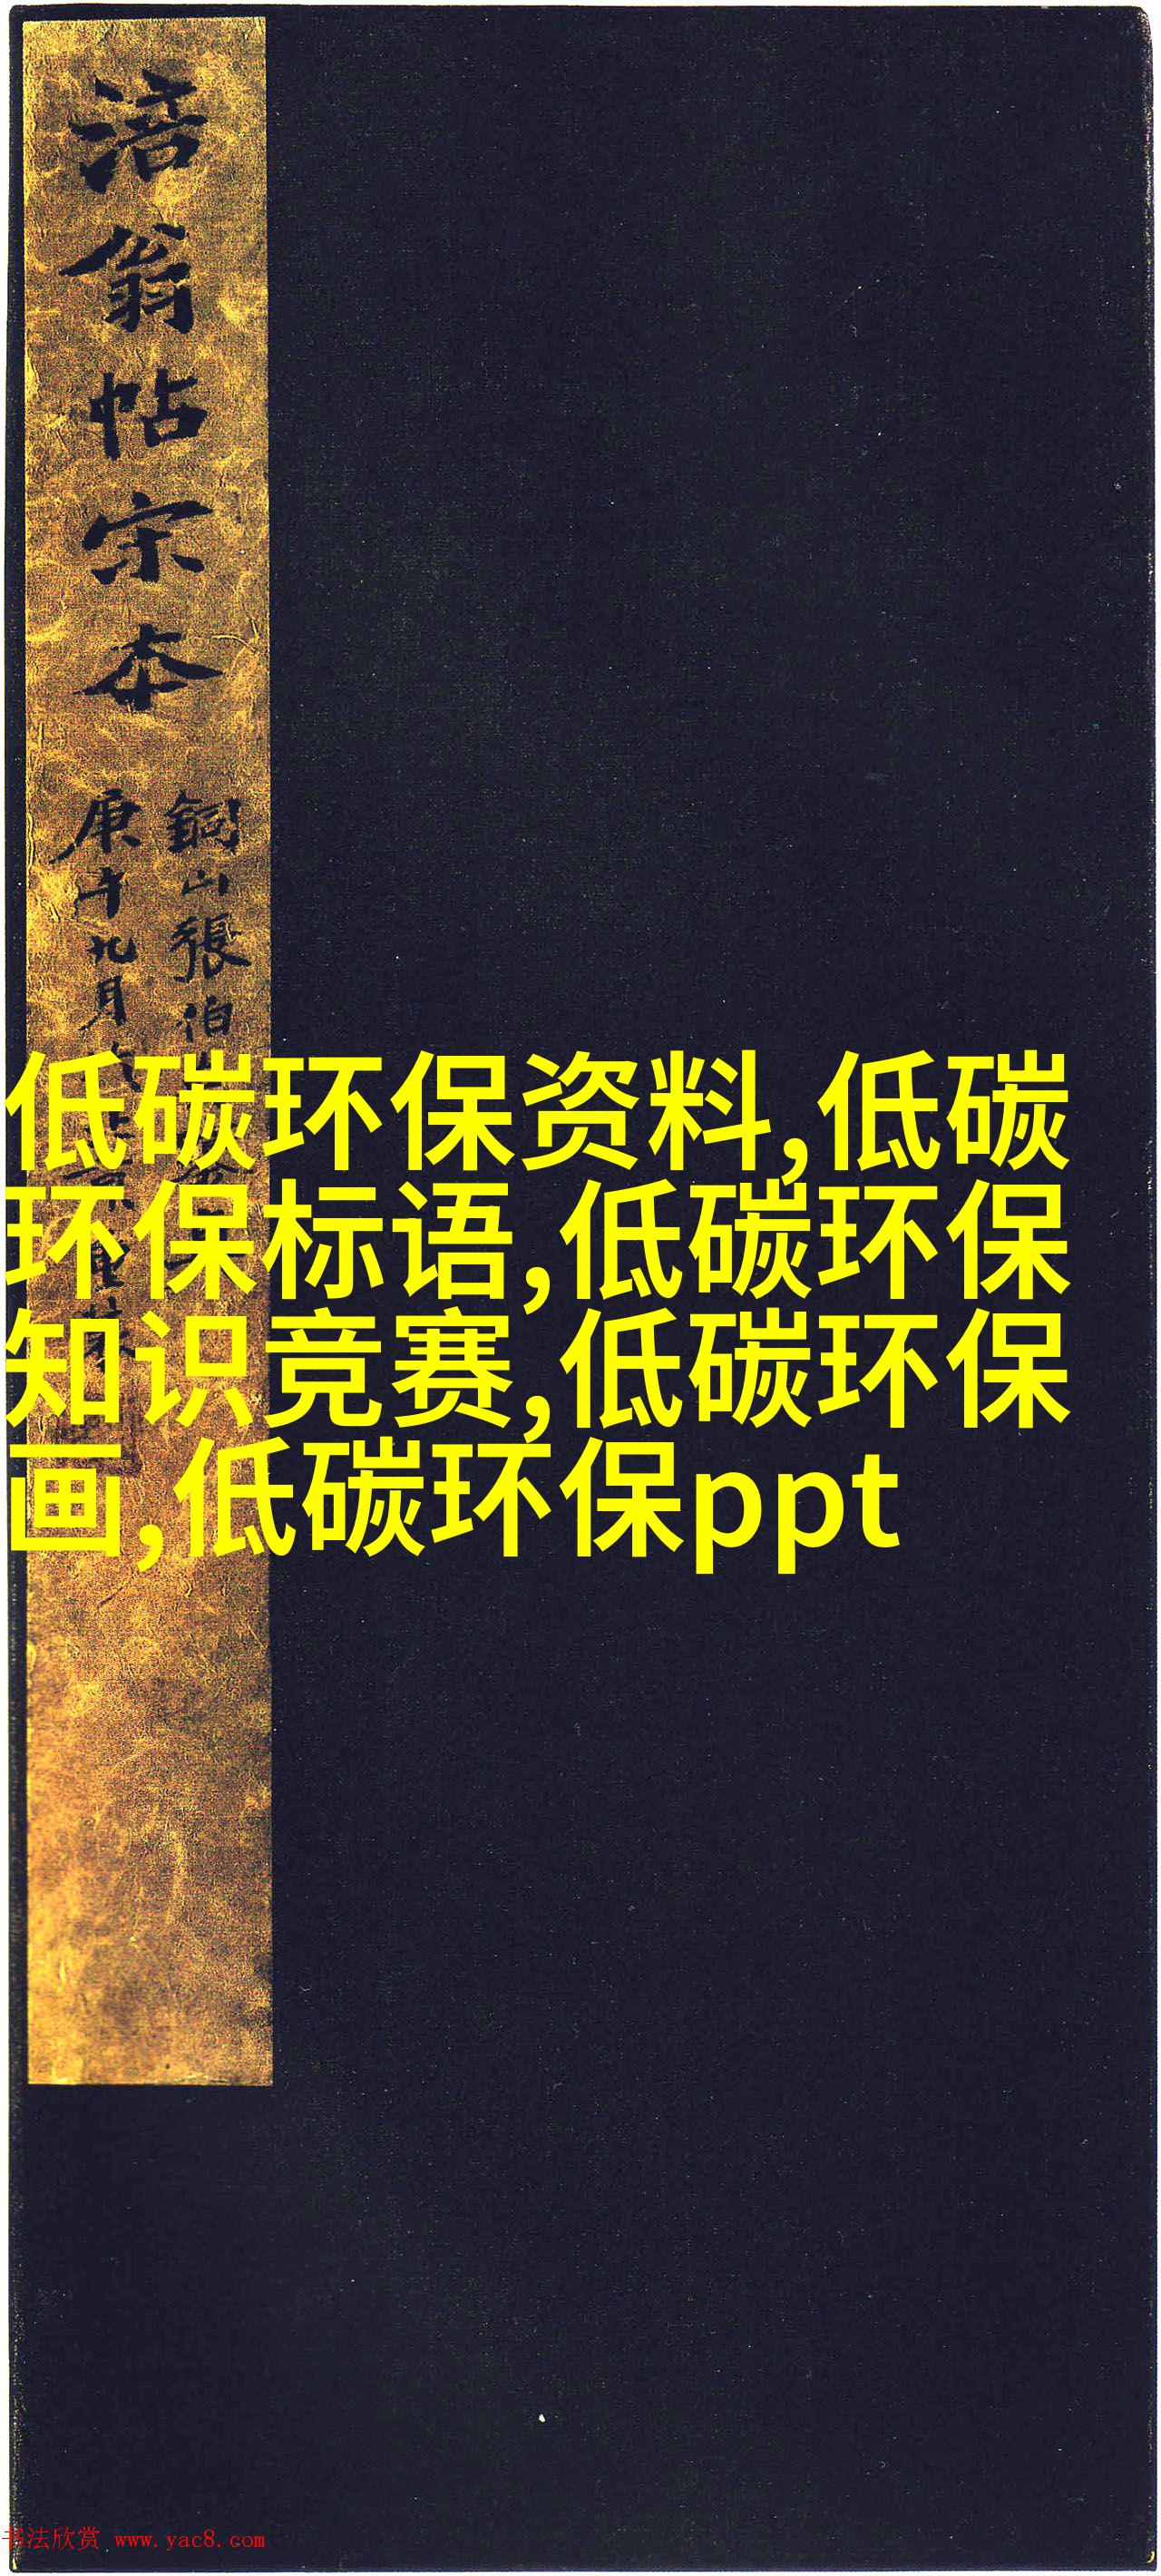 涪翁帖宋本
銅山張伯
庚午九月
低碳环保资料,低碳
环保标语,低碳环保
知识竞赛,低碳环保
画,低碳环保ppt
书法欣赏 www.yac8.com